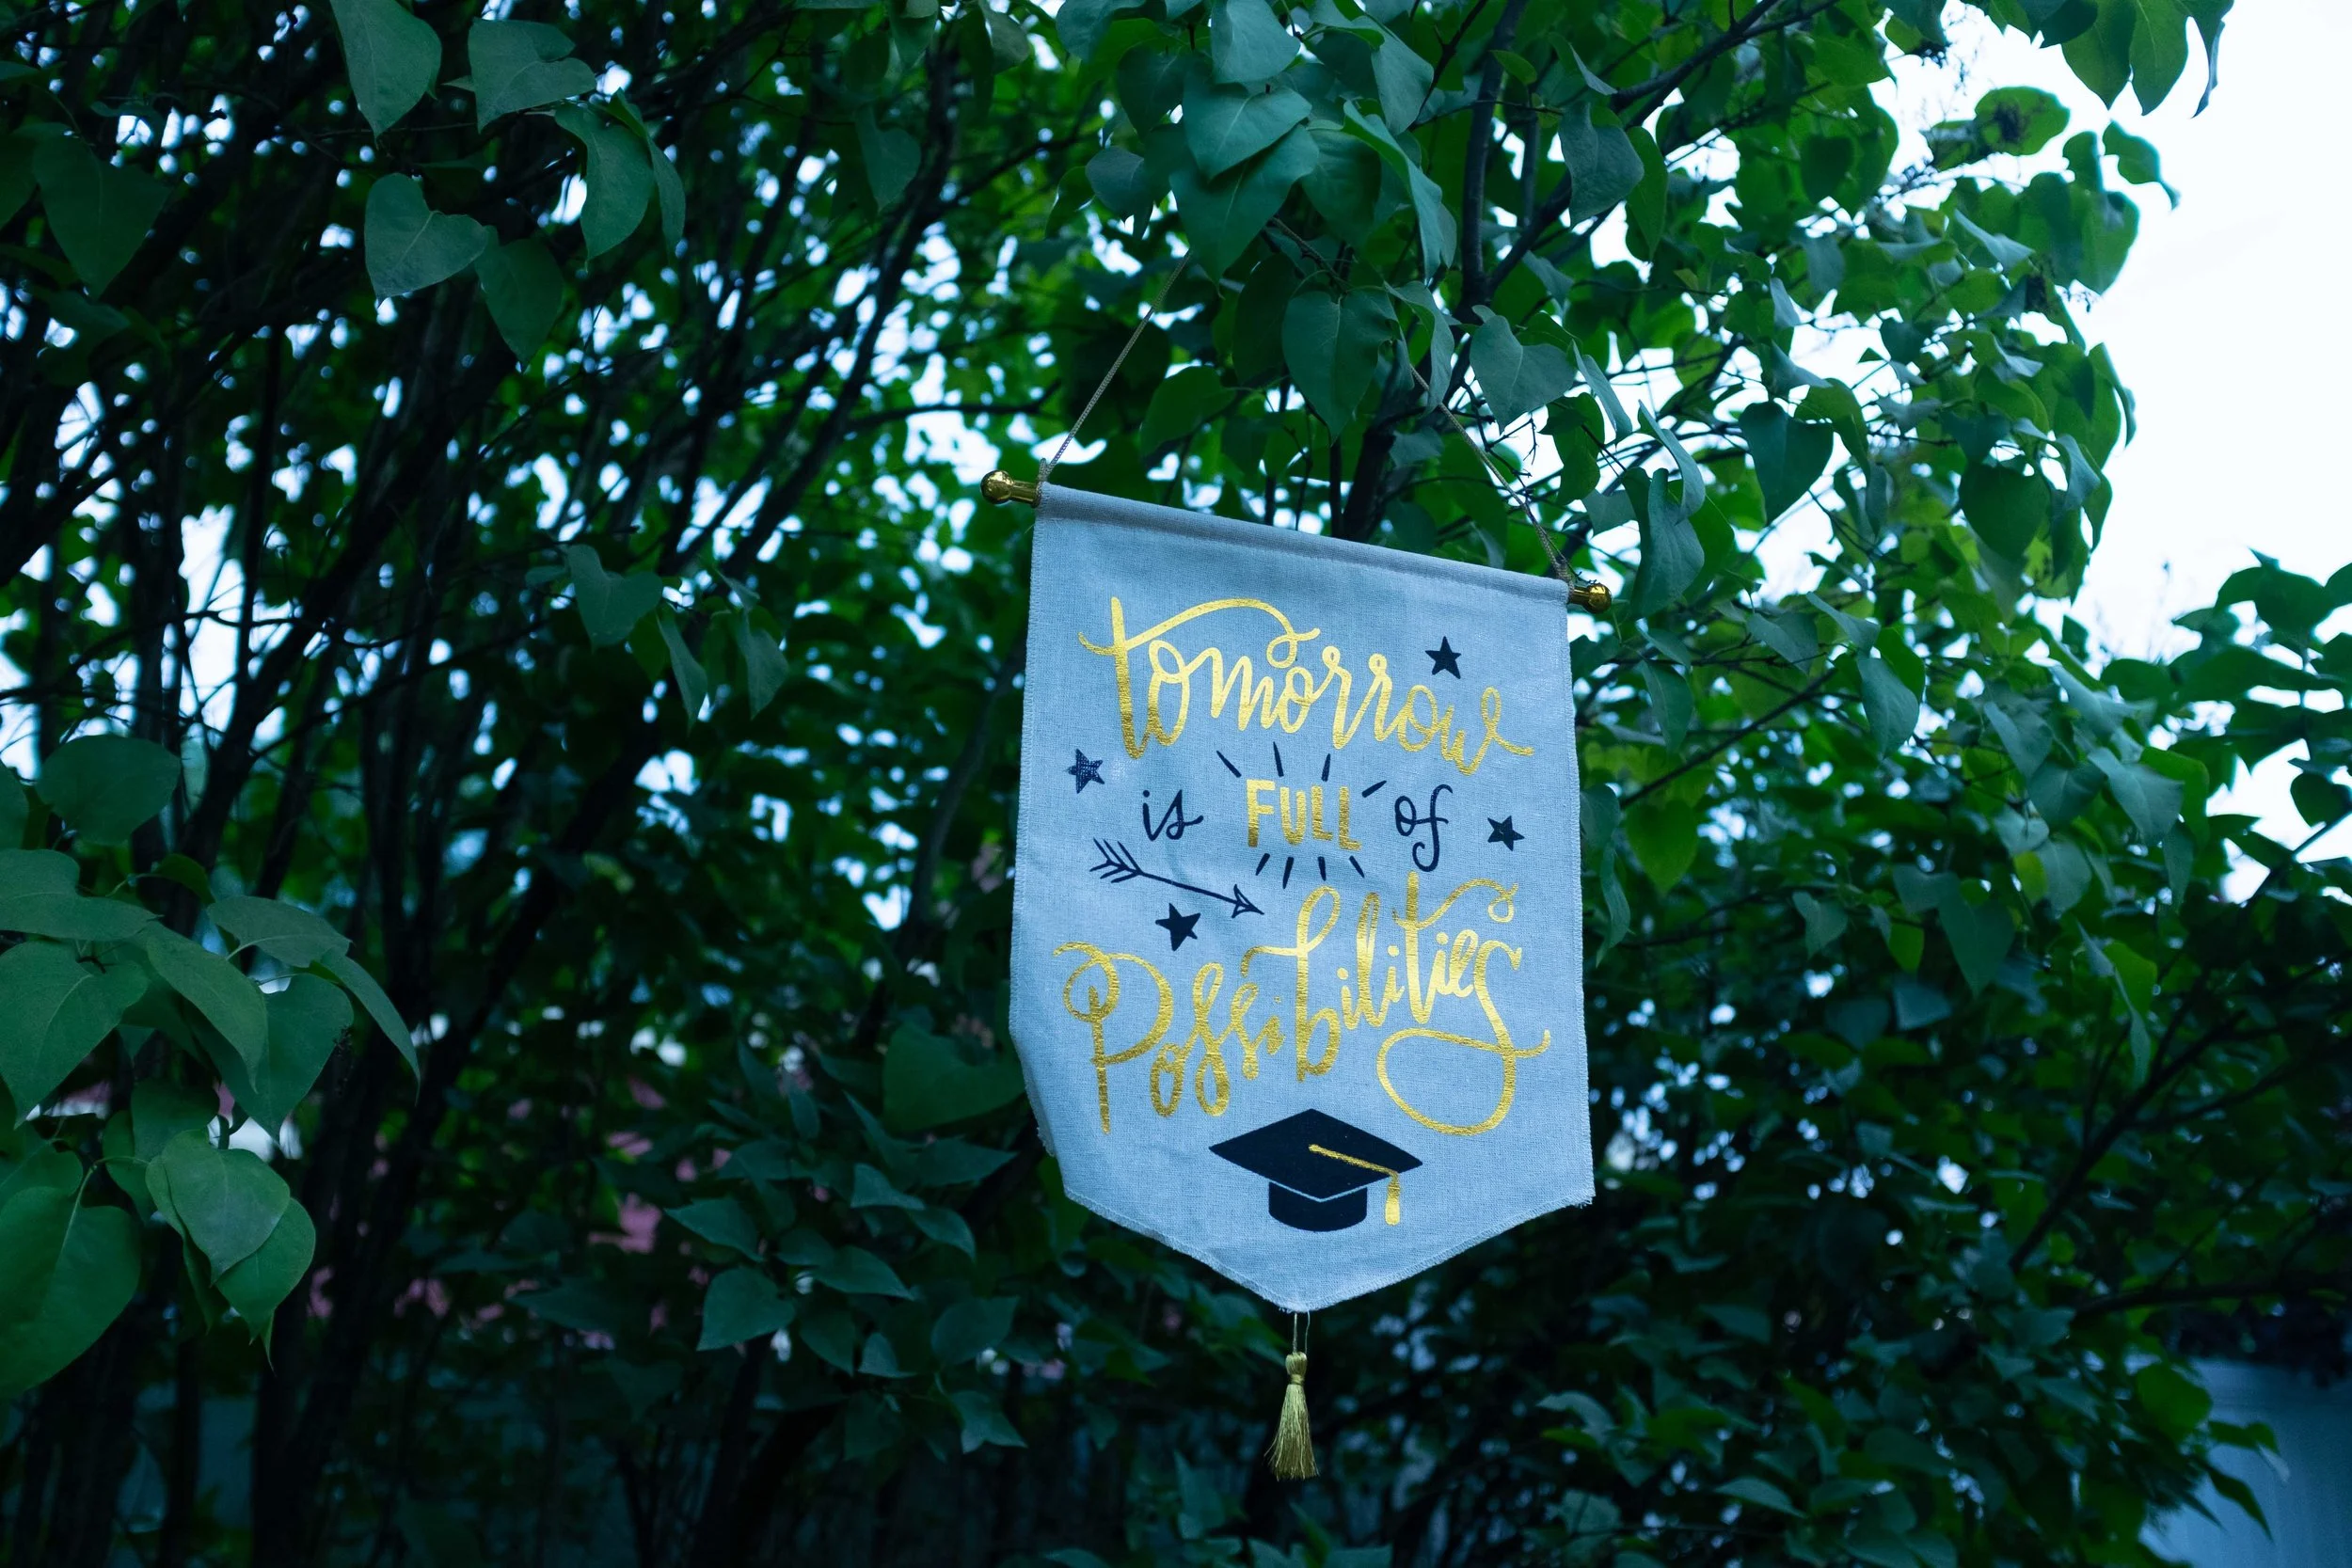 tomorrow
is FULL of
Possibilities